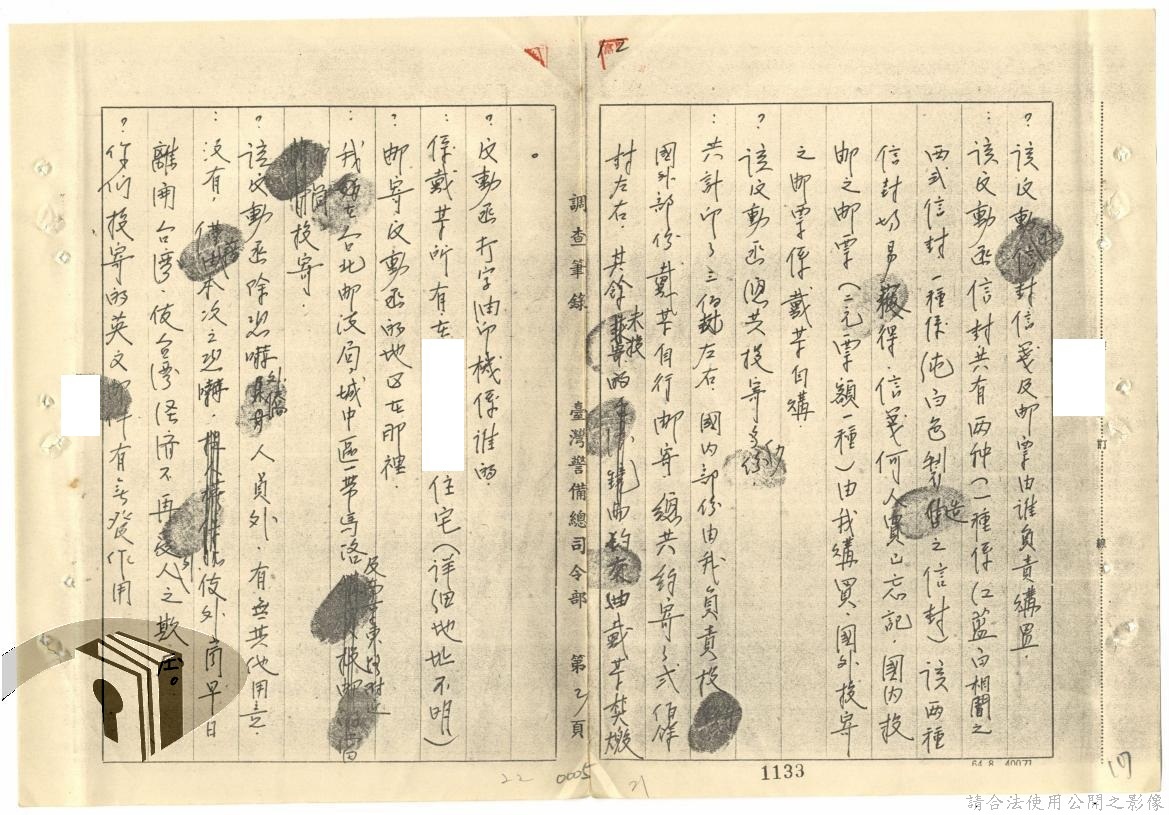 ？該文動函信封信箋及邮票由誰負責購置.
：該文動函信封共有兩种(一種係红藍白相間之
西式信封一種係純白色製造之信封)該兩種
信封切易獲得.信箋何人買已忘記 國内投
邮之邮票(二元票額一種)由我購買.國外投寄
之邮票係戴芊自購.
？該文動函總共投寄多少份
：共計印了三佰封左右 國内部份由我負責投
國外部份戴芊自行邮寄 總共約寄了弍佰餘
封左右.其餘未投 由戴芊焚燬
。
調查筆錄 臺灣警備總司令部 第 2 頁
？文動函打字油印機係誰的
：係戴芊所有在 住宅(詳細地址不明)
？邮寄文動函的地区在那裡
：我 在台北邮政局城中區一帶馬路 及 東 附近
投寄.
？該文動函除恐嚇外僑人員外.有無其他用意.
：沒有.僅 本次之恐嚇. 使外商早日
離開台灣.使台灣经濟不再受人之欺压。
？你们投寄的英文邮件有無發作用
1133
64. 8. 4007
22 0005 21
訂 線
請合法使用公開之影像